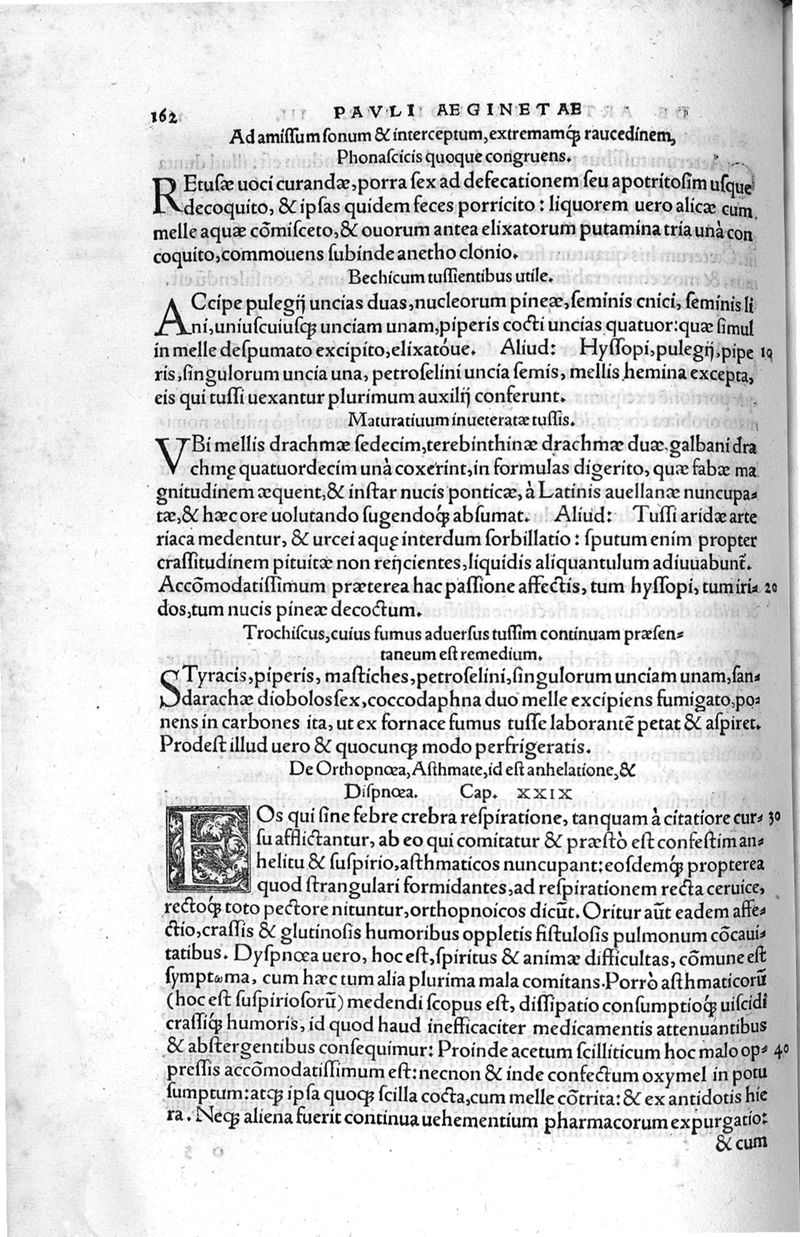 162 PAVLI AEGINETAE
Ad amissum sonum & interceptum, extremamq́ꝫ raucedinem,
Phonascicis quoque congruens.
REtusæ uoci curandæ, porra sex ad defecationem seu apotritosim usque
decoquito, & ipsas quidem feces porricito: liquorem uero alicæ cum
melle aquæ cōmisceto, & ouorum antea elixatorum putamina tria unà con
coquito, commouens subinde anetho clonio.
Bechicum tussientibus utile.
ACcipe pulegij uncias duas, nucleorum pineæ, seminis cnici, seminis li
ni, uniuscuiusqꝫ unciam unam, piperis cocti uncias quatuor: quæ simul
in melle despumato excipito, elixatóue. Aliud: Hyssopi, pulegij, pipe 10
ris, singulorum uncia una, petroselini uncia semis, mellis hemina excepta,
eis qui tussi uexantur plurimum auxilij conferunt.
Maturatiuum inueteratæ tussis.
VBi mellis drachmæ sedecim, terebinthinæ drachmæ duæ, galbani dra
chmę quatuordecim unà coxerint, in formulas digerito, quæ fabæ ma
gnitudinem æquent, & instar nucis ponticæ, à Latinis auellanæ nuncupa⸗
tæ, & hæc ore uolutando sugendoq́ꝫ absumat. Aliud: Tussi aridæ arte
riaca medentur, & urcei aquę interdum sorbillatio: sputum enim propter
crassitudinem pituitæ non reijcientes, liquidis aliquantulum adiuuabunt̃.
Accōmodatissimum præterea hac passione affectis, tum hyssopi, tum iri⸗ 20
dos, tum nucis pineæ decoctum.
Trochiscus, cuius fumus aduersus tussim continuam præsen⸗
taneum est remedium.
STyracis, piperis, mastiches, petroselini, singulorum unciam unam, san⸗
darachæ diobolos sex, coccodaphna duo melle excipiens fumigato, po⸗
nens in carbones ita, ut ex fornace fumus tusse laborantē petat & aspiret.
Prodest illud uero & quocunqꝫ modo perfrigeratis.
De Orthopnœa, Asthmate, id est anhelatione, &
Dispnœa. Cap. XXIX
EOs qui sine febre crebra respiratione, tanquam à citatiore cur⸗ 30
su afflictantur, ab eo qui comitatur & præstò est confestim an⸗
helitu & suspirio, asthmaticos nuncupant: eosdemq́ꝫ propterea
quod strangulari formidantes, ad respirationem recta ceruice,
rectoq́ꝫ toto pectore nituntur, orthopnoicos dicūt. Oritur aūt eadem affe⸗
ctio, crassis & glutinosis humoribus oppletis fistulosis pulmonum cōcaui⸗
tatibus. Dyspnœa uero, hoc est, spiritus & animæ difficultas, cōmune est
symptωma, cum hæc tum alia plurima mala comitans. Porrò asthmaticorū
(hoc est suspiriosorū) medendi scopus est, dissipatio consumptioq́ꝫ uiscidi
crassiq́ꝫ humoris, id quod haud inefficaciter medicamentis attenuantibus
& abstergentibus consequimur: Proinde acetum scilliticum hoc malo op⸗ 40
pressis accōmodatissimum est: necnon & inde confectum oxymel in potu
sumptum: atqꝫ ipsa quoqꝫ scilla cocta, cum melle cōtrita: & ex antidotis hie
ra. Neqꝫ aliena fuerit continua uehementium pharmacorum expurgatio:
& cum